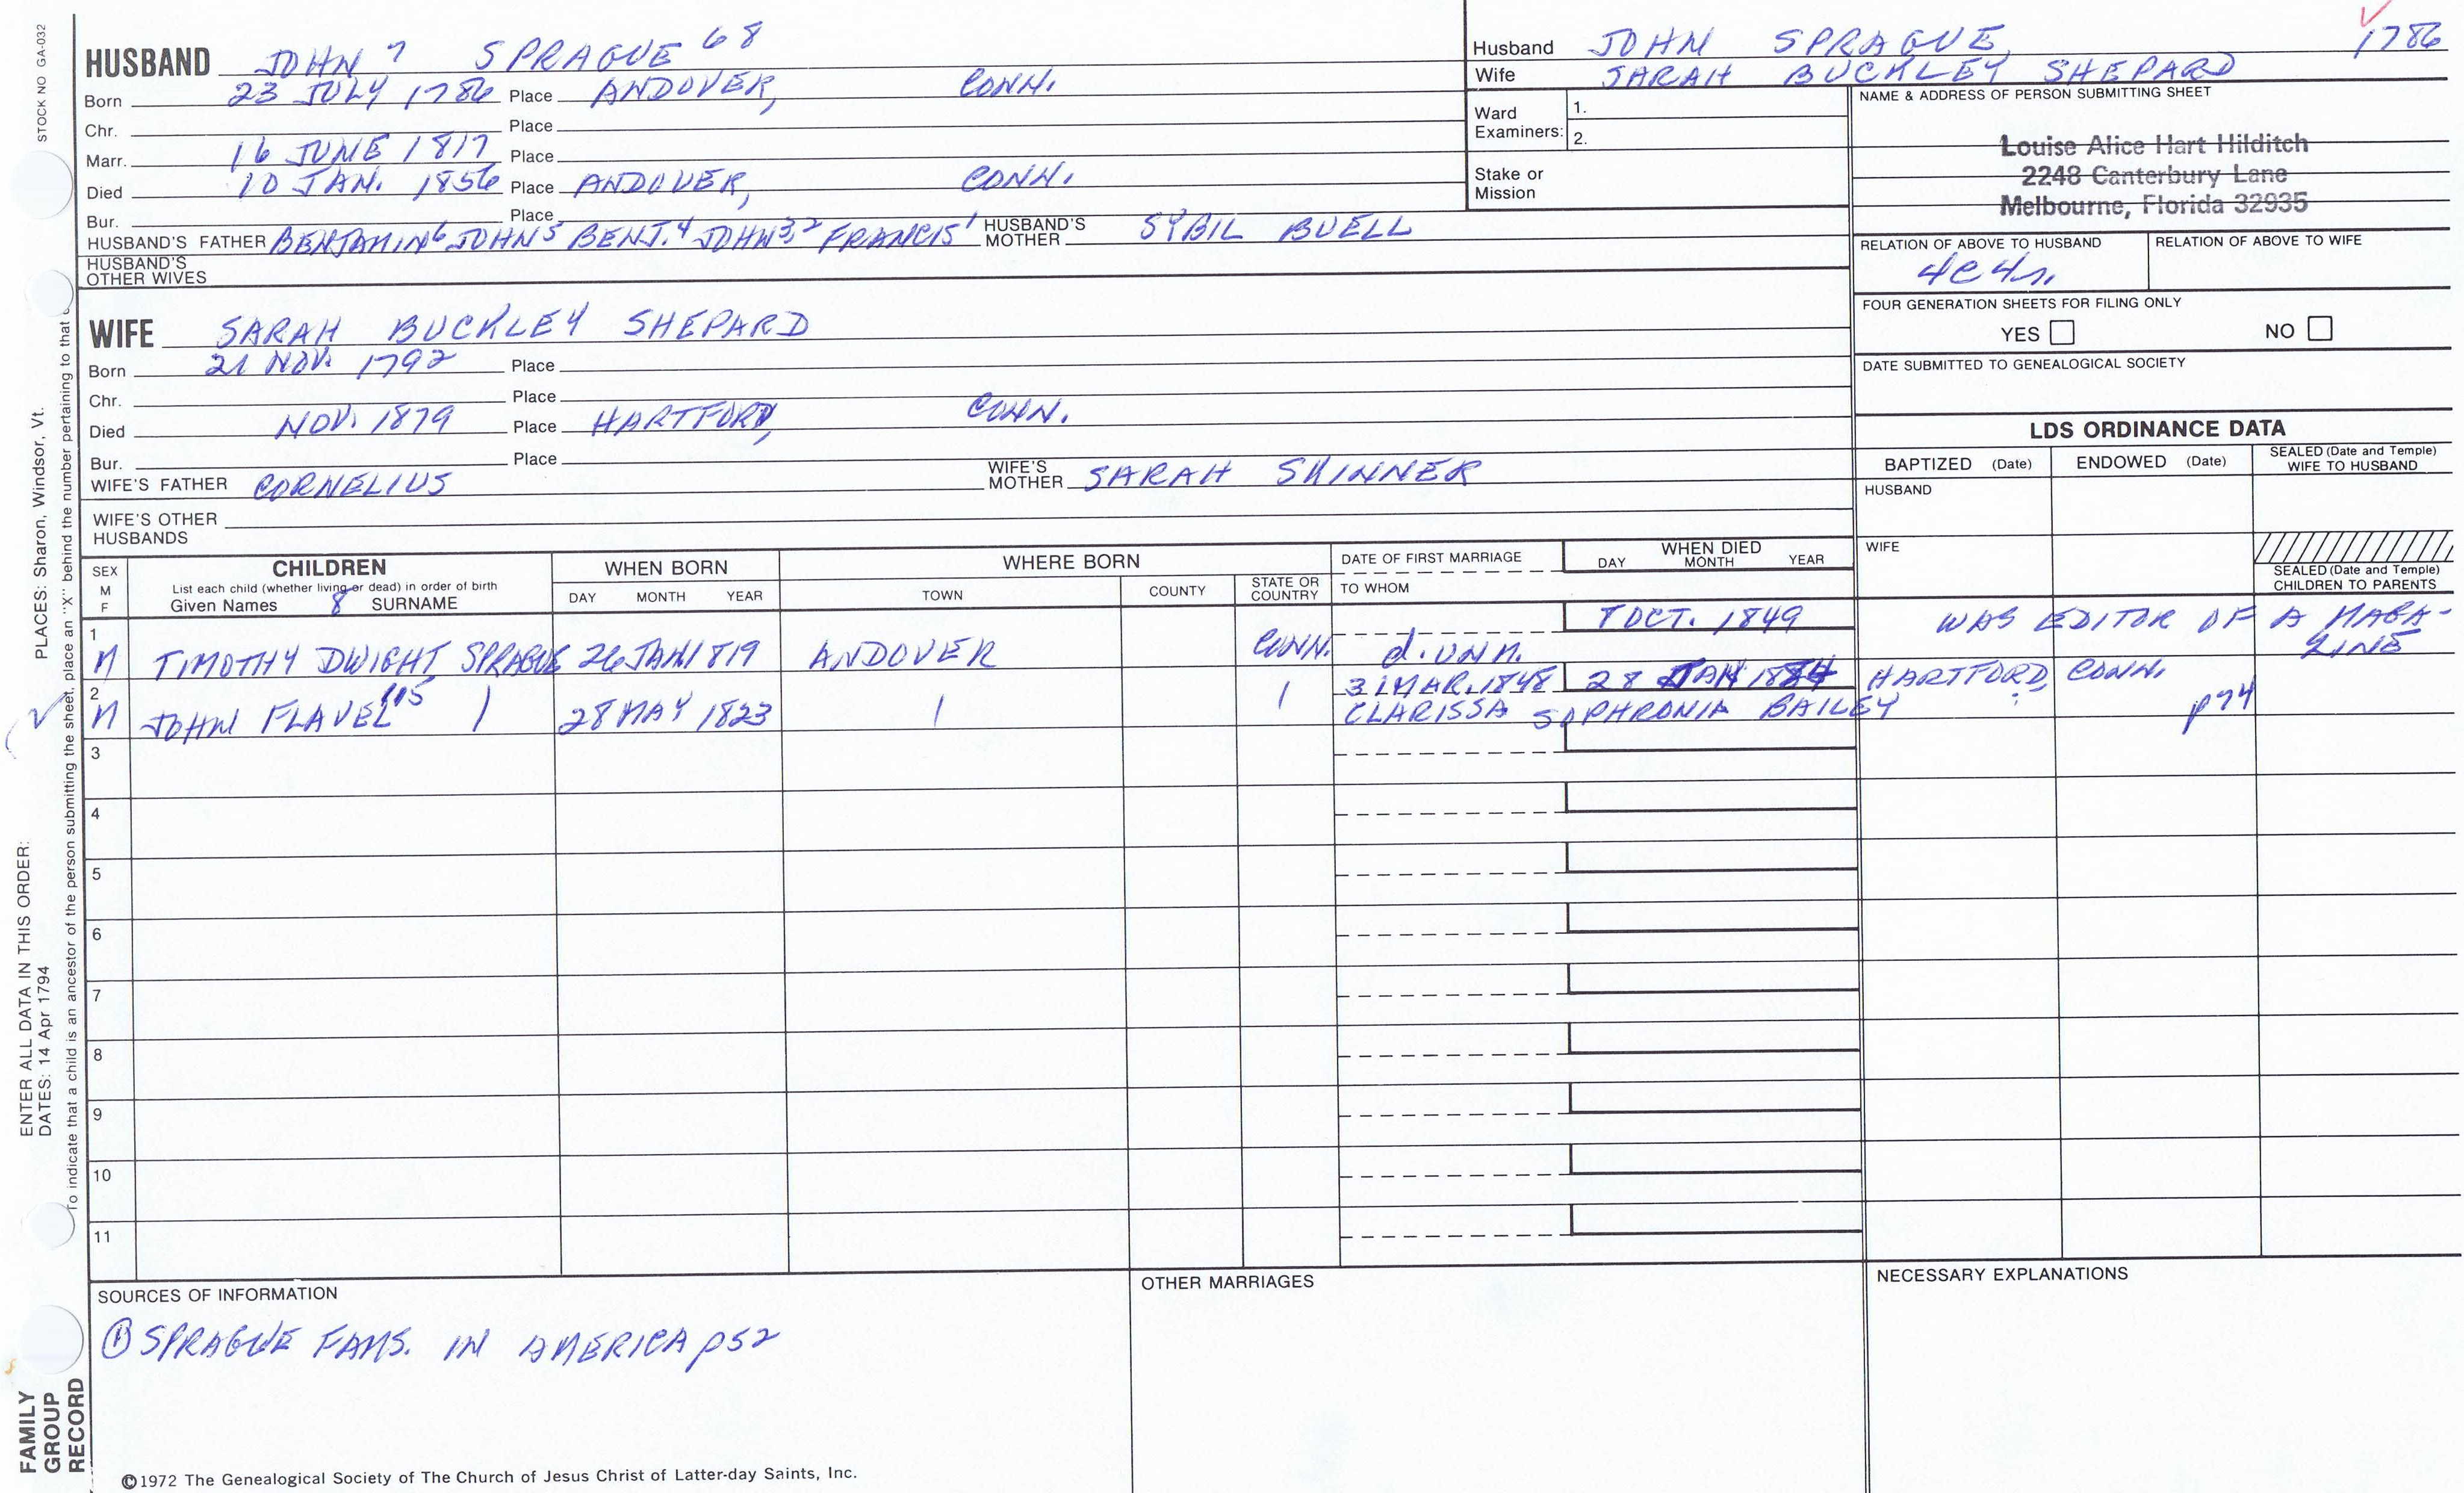 STOCK NO GA-032
HUSBAND JOHN 7 SPRAGUE 68
Born 23 JULY 1786 Place ANDOVER, CONN.
Chr. Place
Marr. 16 JUNE 1817 Place
Died 10 JAN. 1856 Place ANDOVER, CONN.
Bur. Place
HUSBAND'S FATHER BENJAMIN6 JOHN5 BENJ.4 JOHN3,2 FRANCIS1 HUSBAND'S MOTHER SYBIL BUELL
HUSBAND'S OTHER WIVES
Husband JOHN SPRAGUE, 1786
Wife SARAH BUCKLEY SHEPARD
Ward Examiners: 1.
2.
Stake or Mission
NAME & ADDRESS OF PERSON SUBMITTING SHEET
Louise Alice Hart Hilditch
2248 Canterbury Lane
Melbourne, Florida 32935
RELATION OF ABOVE TO HUSBAND RELATION OF ABOVE TO WIFE
4C4r.
FOUR GENERATION SHEETS FOR FILING ONLY
YES NO
DATE SUBMITTED TO GENEALOGICAL SOCIETY
WIFE SARAH BUCKLEY SHEPARD
Born 21 NOV. 1792 Place
Chr. Place
Died NOV. 1879 Place HARTFORD, CONN.
Bur. Place
WIFE'S FATHER CORNELIUS WIFE'S MOTHER SARAH SKINNER
WIFE'S OTHER HUSBANDS
LDS ORDINANCE DATA
BAPTIZED (Date) ENDOWED (Date) SEALED (Date and Temple) WIFE TO HUSBAND
HUSBAND
WIFE
SEALED (Date and Temple) CHILDREN TO PARENTS
SEX M F
CHILDREN
List each child (whether living or dead) in order of birth
Given Names 8 SURNAME
WHEN BORN
DAY MONTH YEAR
WHERE BORN
TOWN COUNTY STATE OR COUNTRY
DATE OF FIRST MARRIAGE
TO WHOM
WHEN DIED
DAY MONTH YEAR
1 M TIMOTHY DWIGHT SPRAGUE 26 JAN 1819 ANDOVER CONN. d. unm. 8 OCT. 1849 WAS EDITOR OF A MAGA-
ZINE
2 M JOHN FLAVEL 115 28 MAY 1823 31 MAR. 1848 28 JAN 1884 HARTFORD, CONN.
CLARISSA SOPHRONIA BAILEY p74
3
4
5
6
7
8
9
10
11
SOURCES OF INFORMATION
SPRAGUE FAMS. IN AMERICA p52
OTHER MARRIAGES
NECESSARY EXPLANATIONS
©1972 The Genealogical Society of The Church of Jesus Christ of Latter-day Saints, Inc.
FAMILY GROUP RECORD
ENTER ALL DATA IN THIS ORDER:
DATES: 14 Apr 1794
PLACES: Sharon, Windsor, Vt.
To indicate that a child is an ancestor of the person submitting the sheet, place an "X" behind the number pertaining to that